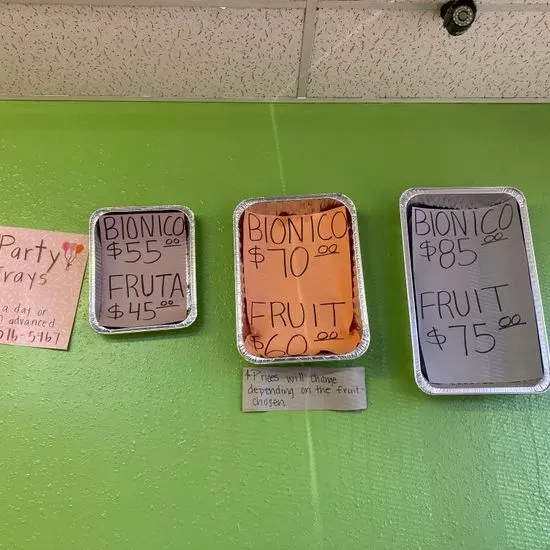 Party
Trays
a day or
advanced
516-5461
BIONICO
$55.00
FRUTA
$45.00
BIONICO
$70.00
FRUIT
$60.00
* Prices will change
depending on the fruit
chosen.
BIONICO
$85.00
FRUIT
$75.00